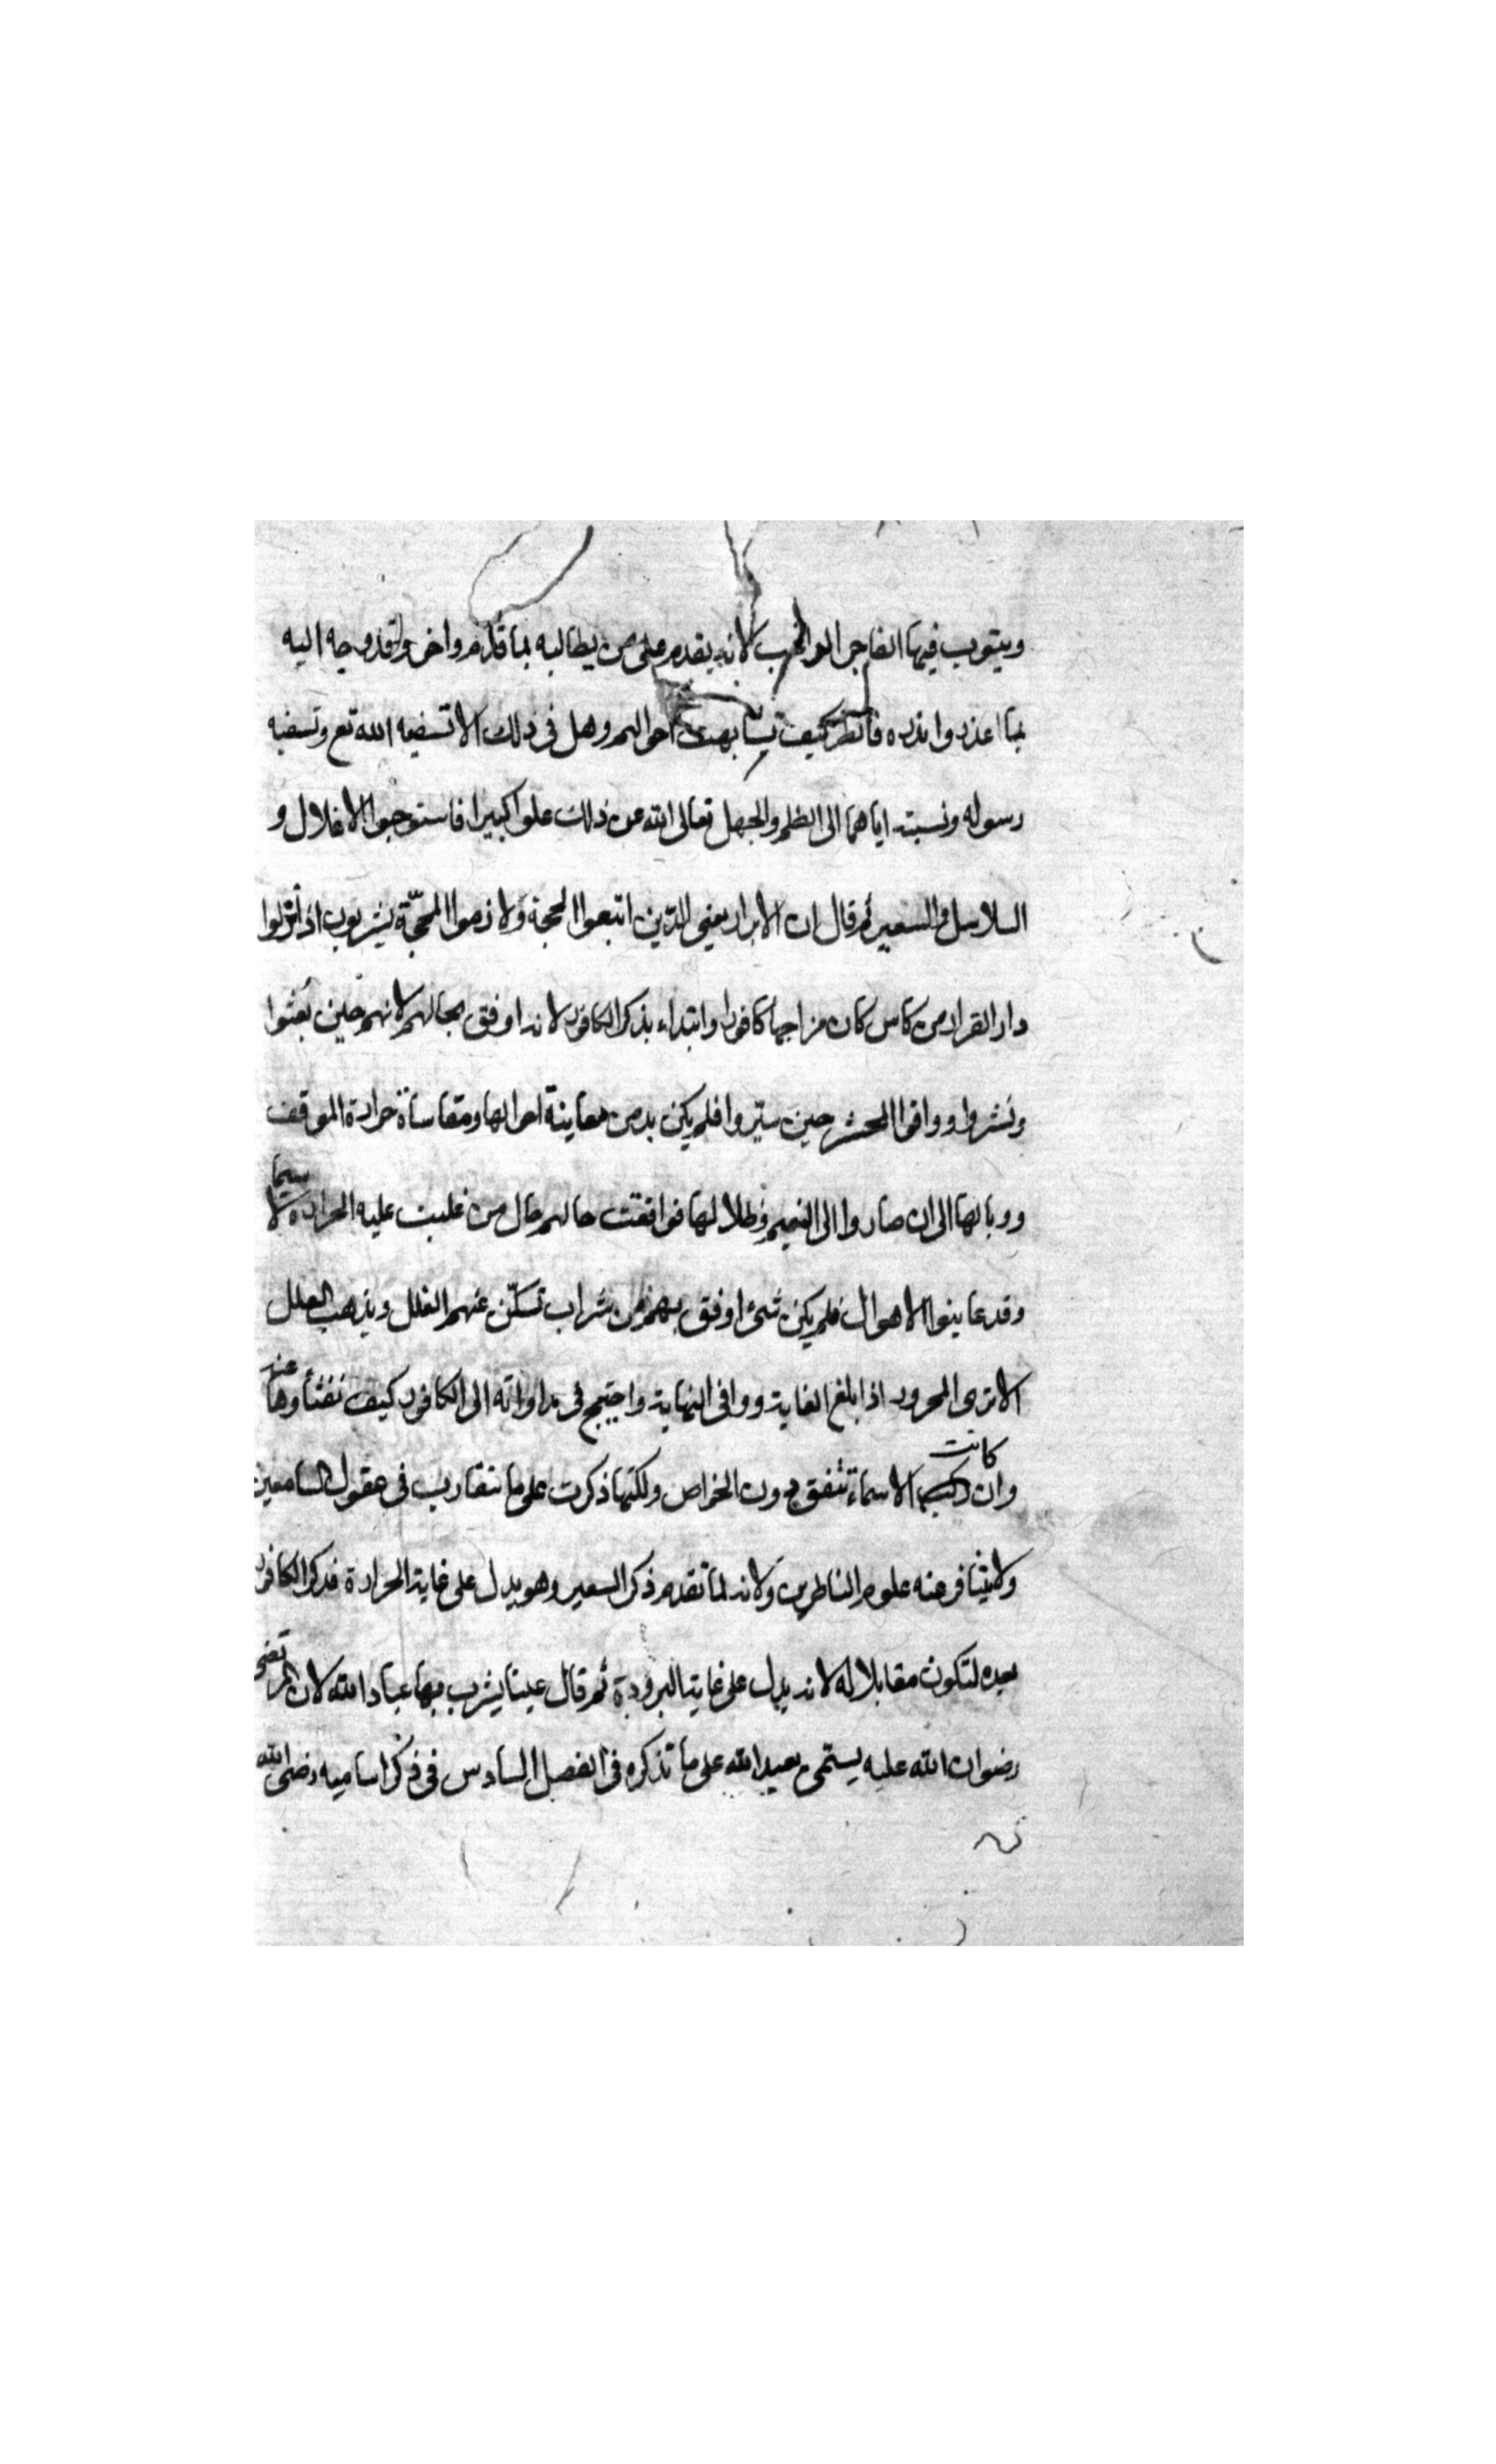 ويتوب فيها الفاجر الهرب لانه يقدم على من يطالبه بما قدم واخر ولقد وجه اليه
بما اعذر وانذره فانظر كيف تشابهت احوالهم وهل في ذلك الا تسفيه الله تع وتسفيه
رسوله ونسبته اياهما الى الظلم والجهل تعالى الله عن ذلك علوا كبيرا فاستوجبوا الاغلال و
السلاسل والسعير ثم قال ان الابرار يعني الذين اتبعوا الحجة ولازموا المحجّة يشربون اذا نزلوا
دار القرار من كاس كان مزاجها كافورا وابتداء بذكر الكافور لانه اوفق بحالهم لانهم حين بُعثوا
ونُشروا ووافوا المحشر حين سيّروا فلم يكن بد من معاينة اهوالها ومقاساة حرارة الموقف
ووبالها الى ان صاروا الى النعيم وظلالها فوافقت حالهم حال من غلبت عليه الحرارة لا سيما
وقد عاينوا الاهوال فلم يكن شئ اوفق بهم من شراب تسكّن عنهم الغلل ويذهب العلل
الا ترى المحرور اذا بلغ الغاية ووافى النهاية واحتيج في مداواته الى الكافور كيف تفثأوها عنه
وان كانت الاسماء تتفق دون الخواص ولكنها ذكرت على ما تتقارب في عقول السامعين
ولا يتنافر عنه علوم الناظرين ولانه لما تقدم ذكر السعير وهو يدل على غاية الحرارة فذكر الكافور
بعده لتكون مقابلا له لانه يدل على غاية البرودة ثم قال عينا يشرب بها عباد الله لان المرتضى
رضوان الله عليه يسمّى بعبد الله على ما نذكره في الفصل السادس في ذكر اساميه رضى الله